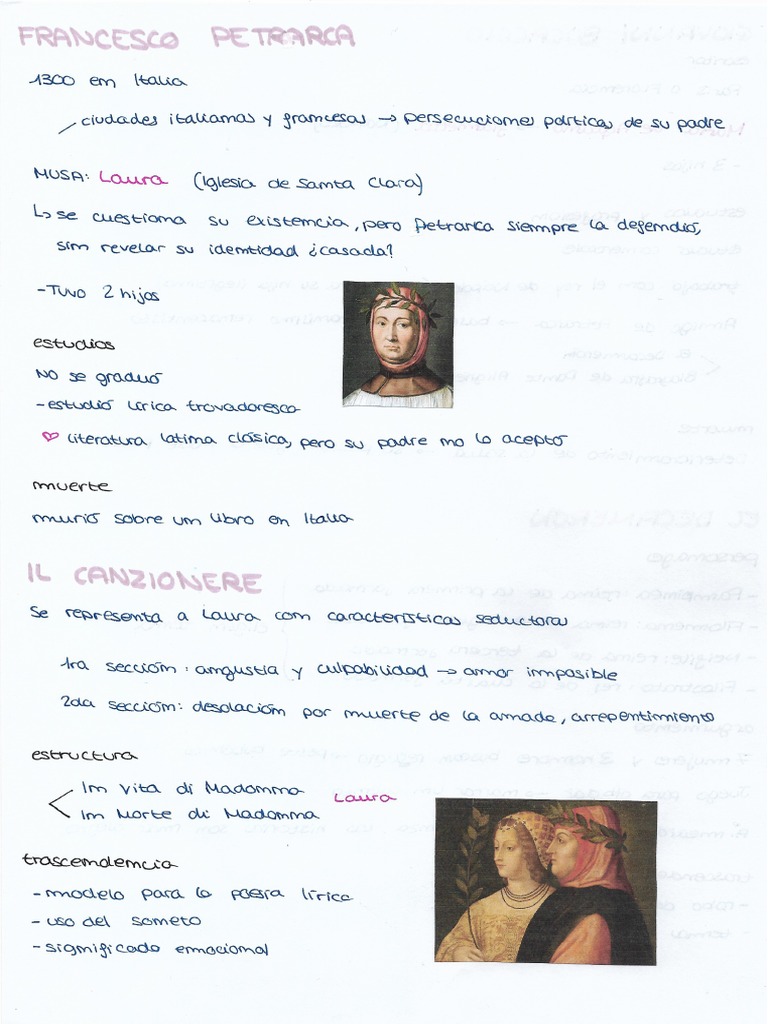 FRANCESCO PETRARCA
1300 en Italia
ciudades italianas y francesas → persecuciones políticas de su padre
MUSA: Laura (Iglesia de Santa Clara)
↳ se cuestiona su existencia, pero Petrarca siempre la defendió,
sin revelar su identidad ¿casada?
-Tuvo 2 hijos
estudios
NO se graduó
-estudió lírica trovadoresca
♡ literatura latina clásica, pero su padre no lo aceptó
muerte
murió sobre un libro en Italia
IL CANZIONERE
Se representa a Laura con características seductoras
1ra sección: angustia y culpabilidad → amor imposible
2da sección: desolación por muerte de la amada, arrepentimiento
estructura
In Vita di Madonna
In Morte di Madonna
Laura
trascendencia
-modelo para la poesía lírica
-uso del soneto
-significado emocional